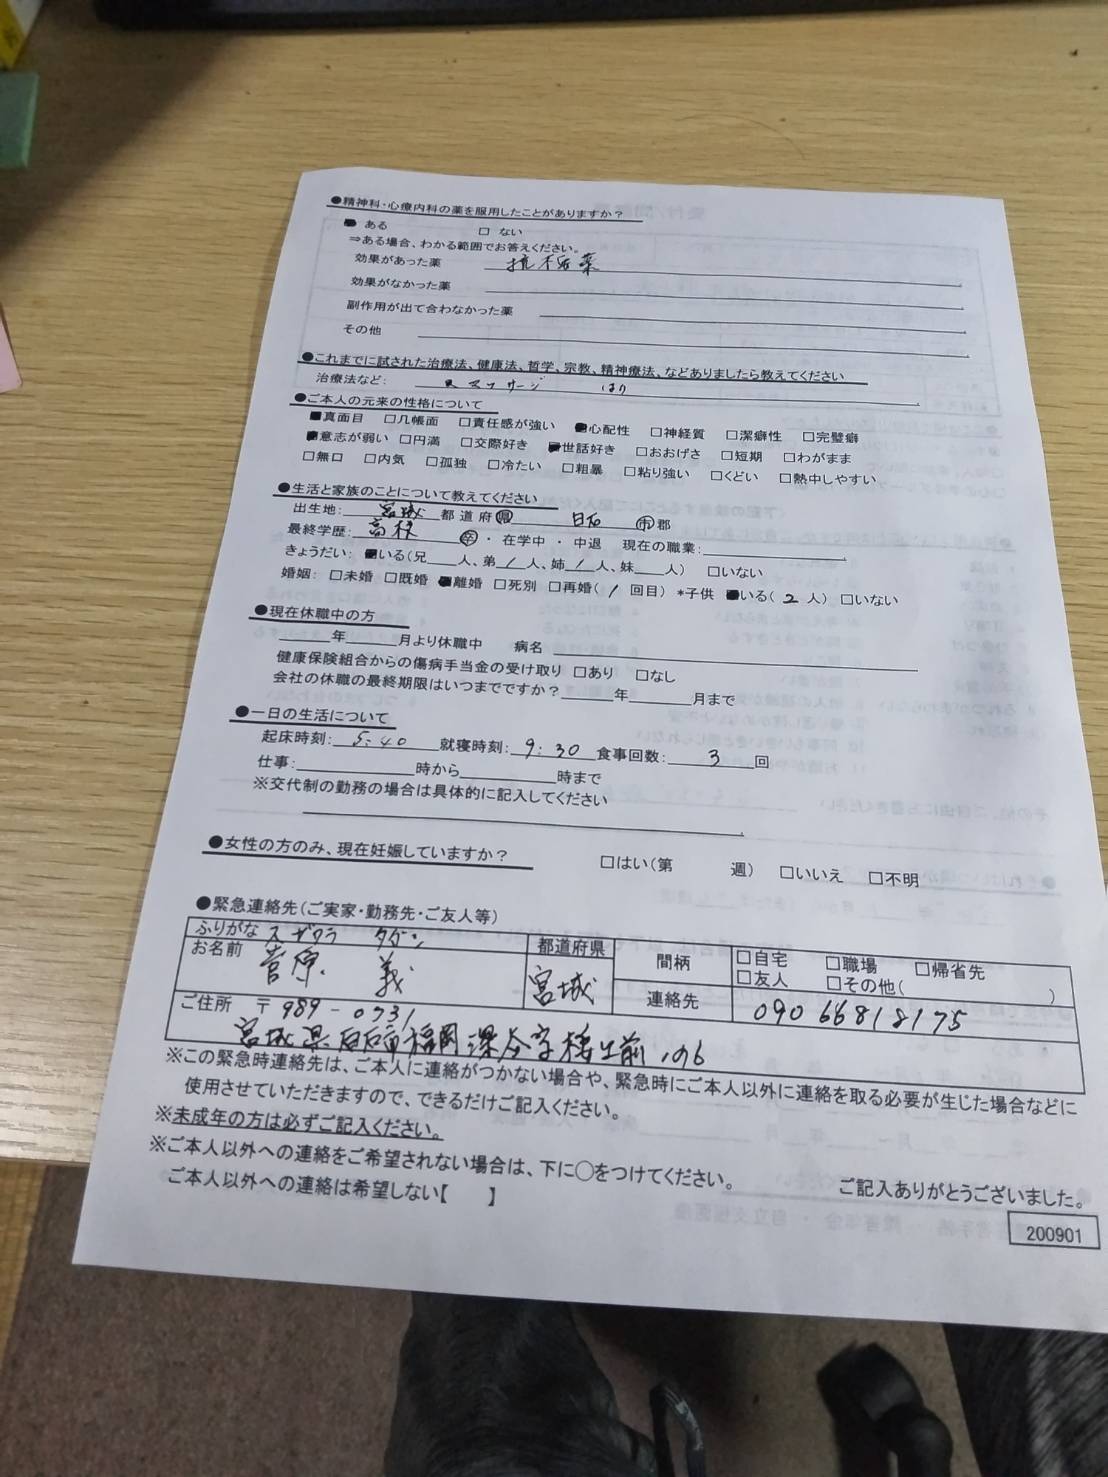 ●精神科・心療内科の薬を服用したことがありますか？
■ ある □ ない
⇒ある場合、わかる範囲でお答えください。
効果があった薬
効果がなかった薬
副作用が出て合わなかった薬
その他
●これまでに試された治療法、健康法、哲学、宗教、精神療法、などありましたら教えてください
治療法など： マッサージ はり
●ご本人の元来の性格について
■真面目 □几帳面 □責任感が強い ■心配性 □神経質 □潔癖性 □完璧癖
■意志が弱い □円満 □交際好き ■世話好き □おおげさ □短期 □わがまま
□無口 □内気 □孤独 □冷たい □粗暴 □粘り強い □くどい □熱中しやすい
●生活と家族のことについて教えてください
出生地： 宮城 都 道 府 県 白石 市 郡
最終学歴： 高校 卒 ・ 在学中 ・ 中退 現在の職業：
きょうだい： ■いる（兄 人、弟 1 人、姉 1 人、妹 人） □いない
婚姻： □未婚 □既婚 ■離婚 □死別 □再婚（ 1 回目） *子供 ■いる（ 2 人） □いない
●現在休職中の方
年 月より休職中 病名
健康保険組合からの傷病手当金の受け取り □あり □なし
会社の休職の最終期限はいつまでですか？ 年 月まで
●一日の生活について
起床時刻： 5:40 就寝時刻： 9:30 食事回数： 3 回
仕事： 時から 時まで
※交代制の勤務の場合は具体的に記入してください
●女性の方のみ、現在妊娠していますか？ □はい（第 週） □いいえ □不明
●緊急連絡先（ご実家・勤務先・ご友人等）
ふりがな
お名前 菅原 義
都道府県 宮城
間柄 □自宅 □職場 □帰省先
□友人 □その他（ ）
連絡先 090 66818175
ご住所 〒989-0731
宮城県白石市福岡深谷字
※この緊急時連絡先は、ご本人に連絡がつかない場合や、緊急時にご本人以外に連絡を取る必要が生じた場合などに
使用させていただきますので、できるだけご記入ください。
※未成年の方は必ずご記入ください。
※ご本人以外への連絡をご希望されない場合は、下に○をつけてください。
ご本人以外への連絡は希望しない【 】
ご記入ありがとうございました。
200901